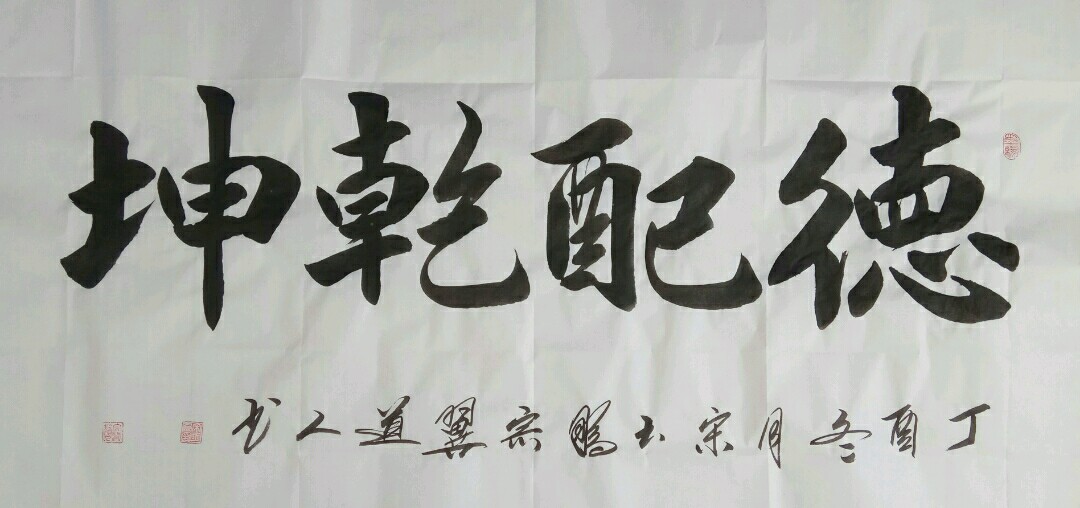 德配乾坤
丁酉冬月宋士鹏宗翼道人书